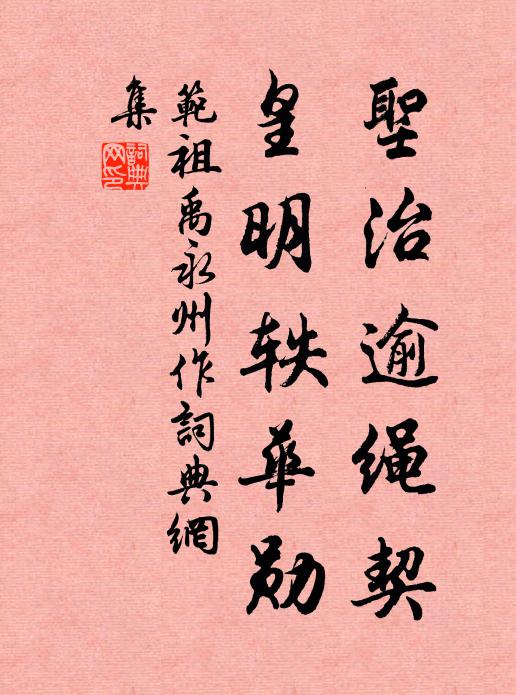 聖治逾绳契
皇明轶華勋
範祖禹永州作詞典網
集
詞典網印